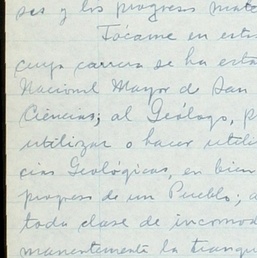 ses y los progresos mate
Tócame en esta
cuya carrera se ha esta
Nacional Mayor de San
Ciencias; al Geólogo, p
utilizar o hacer utili
cias Geológicas, en bien
progreso de un Pueblo; a
toda clase de incomod
manentemente la tranqu